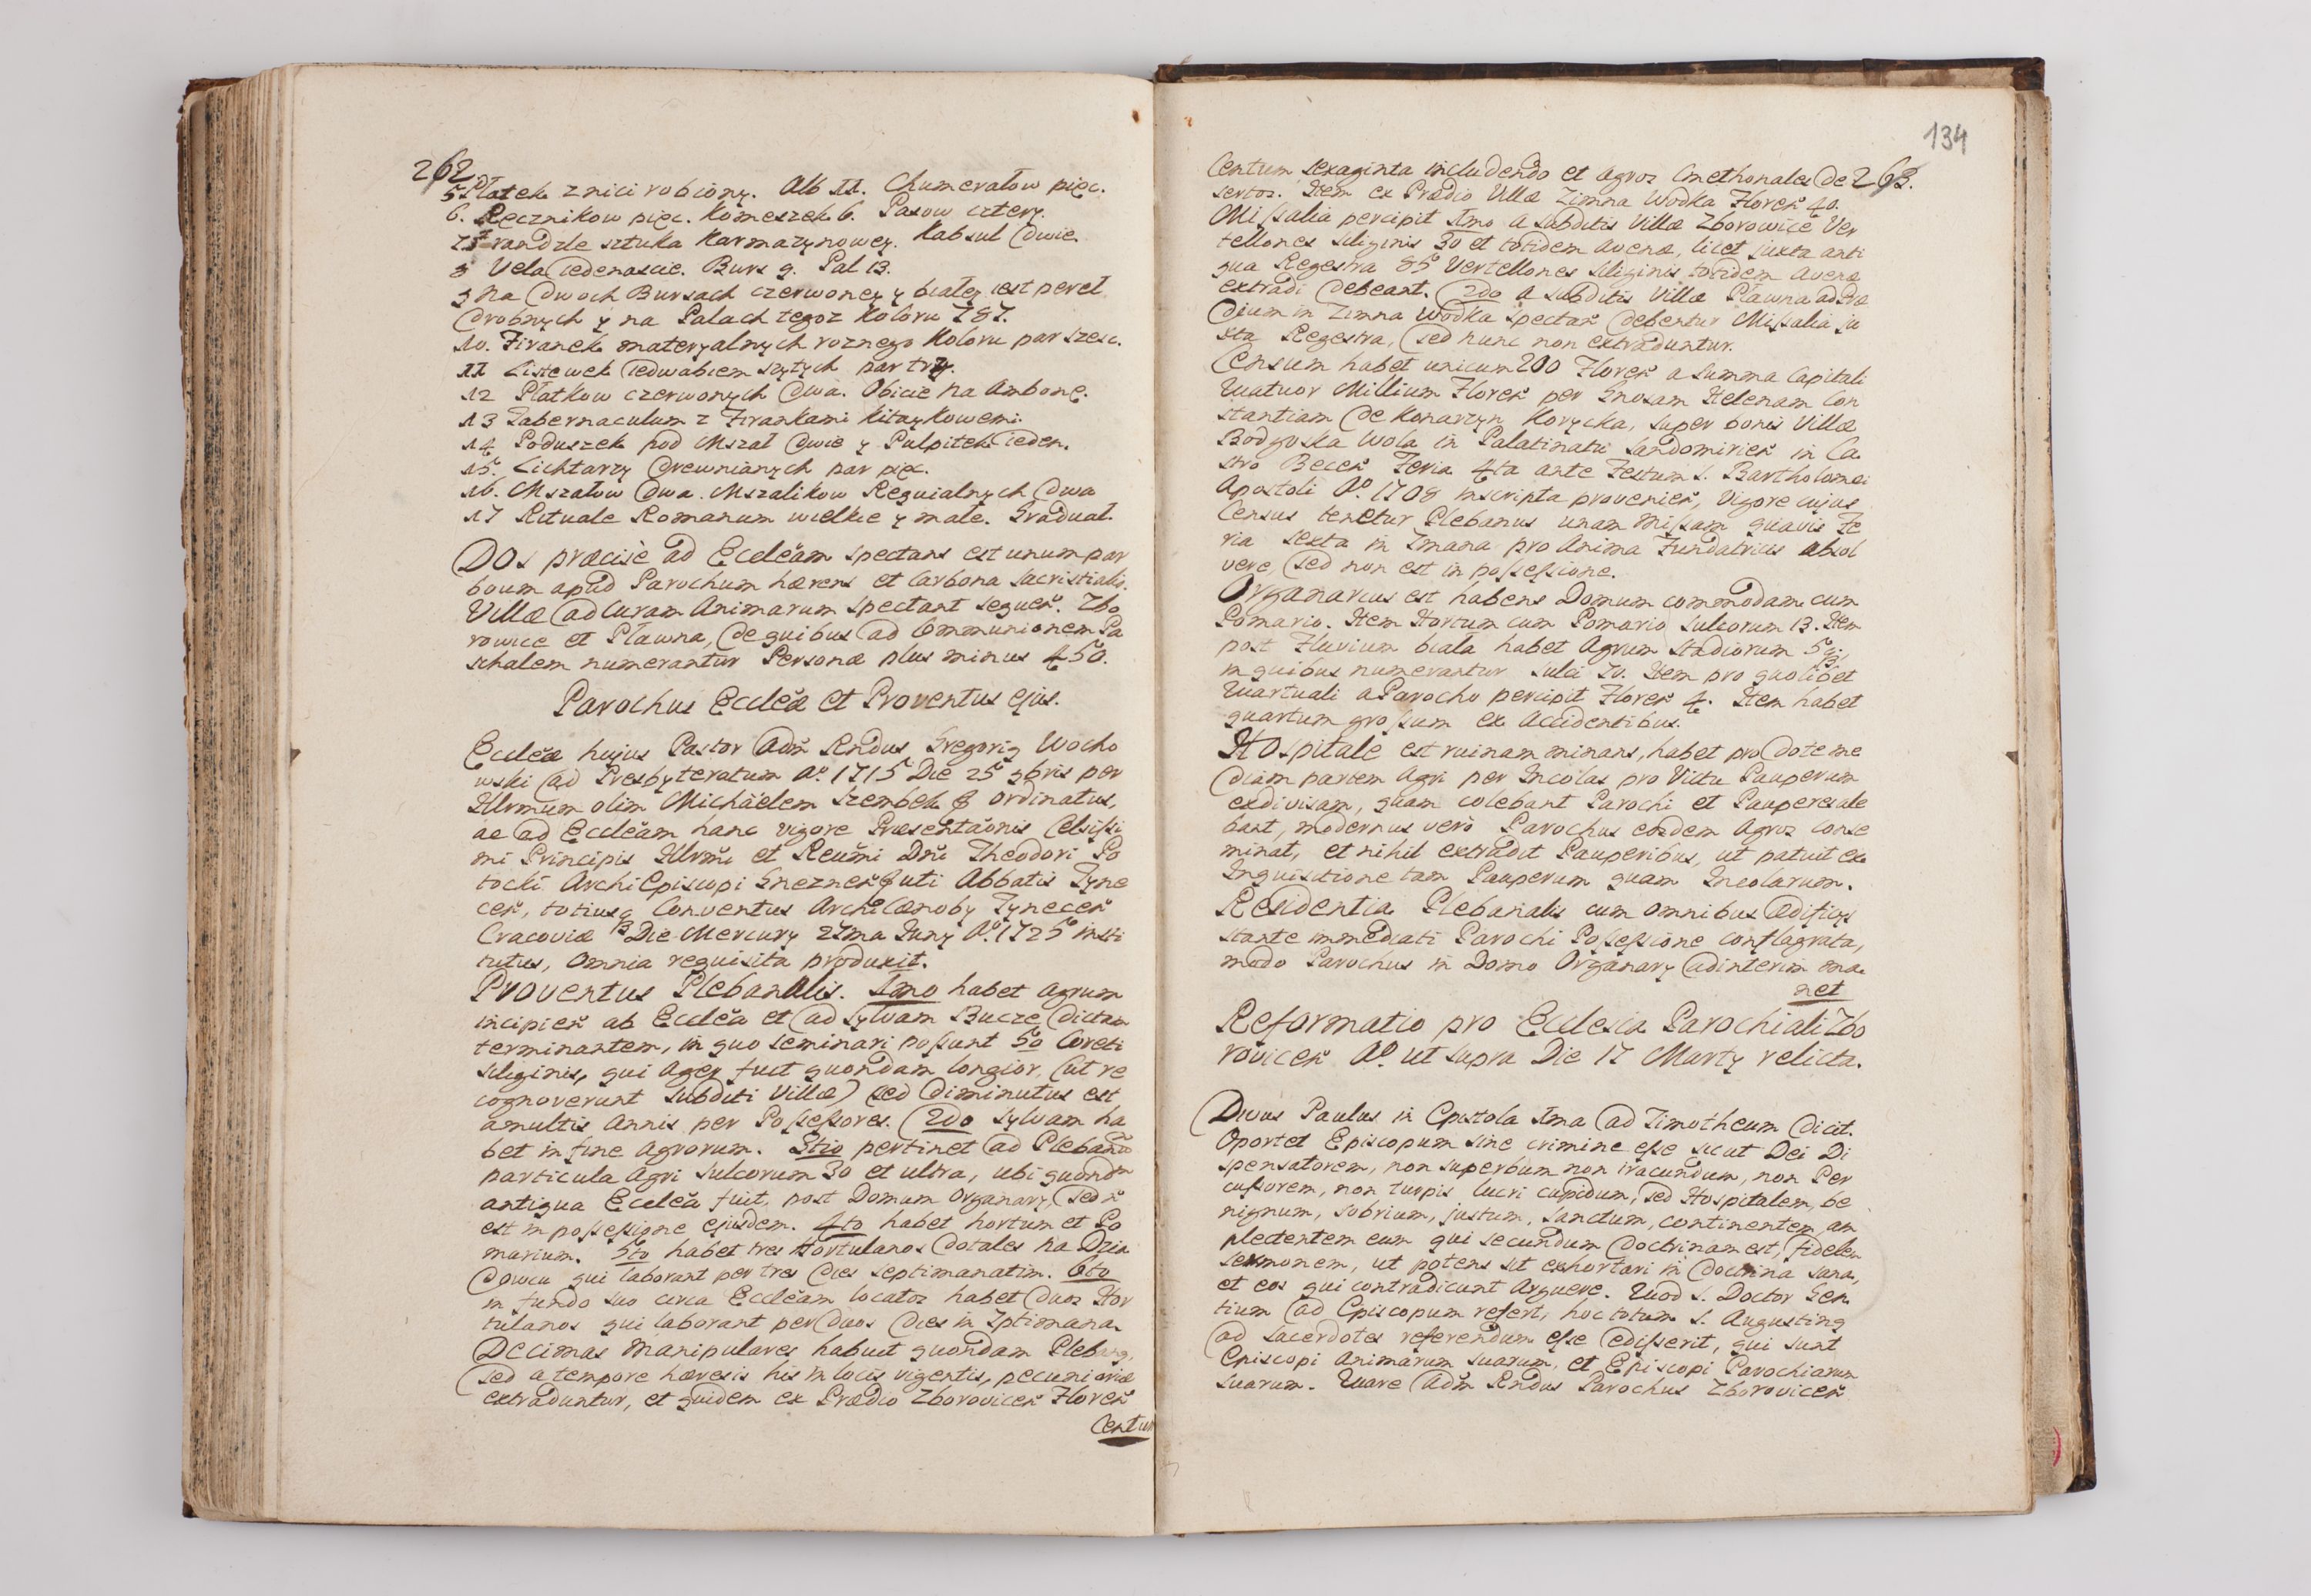 262
5 Płatek z nici robiony. Alb II. Chumerałow pięc.
6. Ręcznikow pięc. Komeszek 6. Pasow cztery.
7. Frandzle sztuka Karmazynowey. Kabsul dwie.
8 Vela iedenascie. Burs 9. Pal 13.
9 Na dwoch Bursach czerwoney y białey iest pereł
drobnych y na Palach tegoz Koloru 787.
10. Firanek materyalnych roznego Koloru par szesc.
11 Listewek iedwabiem szytych par trzy.
12 Płatkow czerwonych dwa. Obicie na Ambonę.
13 Tabernaculum z Firankami Kitaykowemi.
14 Poduszek pod Mszał dwie y Pulpitek ieden.
15. Lichtarzy drewnianych par pięc.
16. Mszałow dwa. Mszalikow Requialnych dwa
17 Rituale Romanum wielkie y małe. Gradual.
Dos præcisè ad Eccleãm spectans est unum par
boum apud Parochum hærens et Carbona sacristialis.
Villæ ad Curam Animarum spectant sequeñ. Zbo
rowice et Pławna, de quibus ad Communionem Pa
schalem numerantur Personæ plus minus 450.
Parochus Eccleæ et Proventus ejus.
Eccleæ hujus Pastor Adm̃ Rndus Gregorig Wocho
wski ad Presbyteratum Aº. 1715 Die 25 9bris per
Illrmum olim Michäelem Szembek E ordinatus,
ac ad Eccleãm hanc vigore Præsentãonis Celsissi
mi Principis Illrm̃i et Reum̃i Dñi Theodori Po
tocki ArchiEpiscopi Gnezneñ uti Abbatis Tyne
ceñ, totiusq Conventus ArchiCænoby Tyneceñ
Cracoviæ Die Mercury 27ma Juny Aº. 1725 insti
tutus, omnia requisita produxit.
Proventus Plebanalis. Imo habet agrum
incipieñ ab Ecclea et ad Sylvam Bucze dictam
terminantem, in quo seminari possunt 50 Coreti
siliginis, qui Ager fuit quondam longior, (ut re
cognoverunt subditi Villæ) sed diminutus est
a multis Annis per Possessores. 2do Sylvam ha
bet in fine Agrorum. 3tio pertinet ad Plebanũ
particula Agri sulcorum 30 et ultra, ubi quondm
antiqua Ecclea fuit, post Domum Organary, sed ñ
est in possessione ejusdem. 4to habet hortum et Po
marium. 5to habet tres Hortulanos dotales na Dzia
dowcu qui laborant per tres dies septimanatim. 6to
in fundo suo circa Eccleãm locatos habet duos Hor
tulanos qui laborant per duos dies in 7ptimana.
Decimas manipulares habuit quondam Plebang,
sed a tempore hæresis his in locis vigentis, pecuniariæ
extraduntur, et quidem ex Prædio Zboroviceñ Floreñ
Centum
134
Centum sexaginta includendo et agros Cmethonales de 263.
sertos. Item ex Prædio Villæ Zimna Wodka Floreñ 40.
Missalia percipit Imo a subditis Villæ Zborowice Ver
tellones siliginis 30 et totidem avenæ, licet juxta anti
qua Regestra 85 Vertellones siliginis totidem avenæ
extradi debeant. 2do a subditis Villæ Pławna ad Præ
dium in Zimna Wodka spectañ debentur Missalia ju
xta Regestra, sed nunc non extraduntur.
Censum habet unicum 200 Floreñ a summa Capitali
Quatuor Millium Floreñ per Gnosam Helenam Con
stantiam de Konarzyn Korycka, super bonis Villæ
Bodguska Wola in Palatinatu Sandomirieñ in Ca
stro Beceñ Feria 4ta ante Festum S. Bartholomei
Apostoli Aº. 1708 inscripta provenieñ, vigore cujus
Census tenetur Plebanus unam missam quavis Fe
ria sexta in 7mana pro Anima Fundatricis absol
vere, sed non est in possessione.
Organarius est habens Domum commodam cum
Pomario. Item Hortum cum Pomario sulcorum 13. Item
post Fluvium biała habet Agrum stadiorum 5q.,
in quibus numerantur sulci 70. Item pro quolibet
Quartuali a Parocho percipit Floreñ 4. Item habet
quartum grossum ex Accidentibus.
Hospitale est ruinam minans, habet pro dote me
diam partem Agri per Incolas pro Victu Pauperum
exdivisam, quam colebant Parochi et Pauperes ale
bant, modernus verò Parochus eosdem Agros conse
minat, et nihil extradit Pauperibus, ut patuit ex
Inquisitione tam Pauperum quam Incolarum.
Residentia Plebanalis cum omnibus Ædificys
stante immediati Parochi Possessione conflagrata,
modo Parochus in Domo Organary ad interim ma
net
Reformatio pro Ecclesia Parochiali Zbo
roviceñ Aº. ut supra Die 17 Marty relicta.
Divus Paulus in Epistola Ima ad Timotheum dicit.
Oportet Episcopum sine crimine esse sicut Dei Di
spensatorem, non superbum non iracundum, non Per
cussorem, non turpis lucri cupidum, sed Hospitalem, be
nignum, sobrium, justum, sanctum, continentem, am
plectentem eum qui secundum doctrinam est, fidelem
sermonem, ut potens sit exhortari in doctrina sana,
et eos qui contradicunt arguere. Quod S. Doctor Gen
tium ad Episcopum refert, hoc totum S. Augusting
ad sacerdotes referendum esse edisserit, qui sunt
Episcopi Animarum suarum, et Episcopi Parochiarum
suarum. Quare Adm̃ Rndus Parochus Zboroviceñ